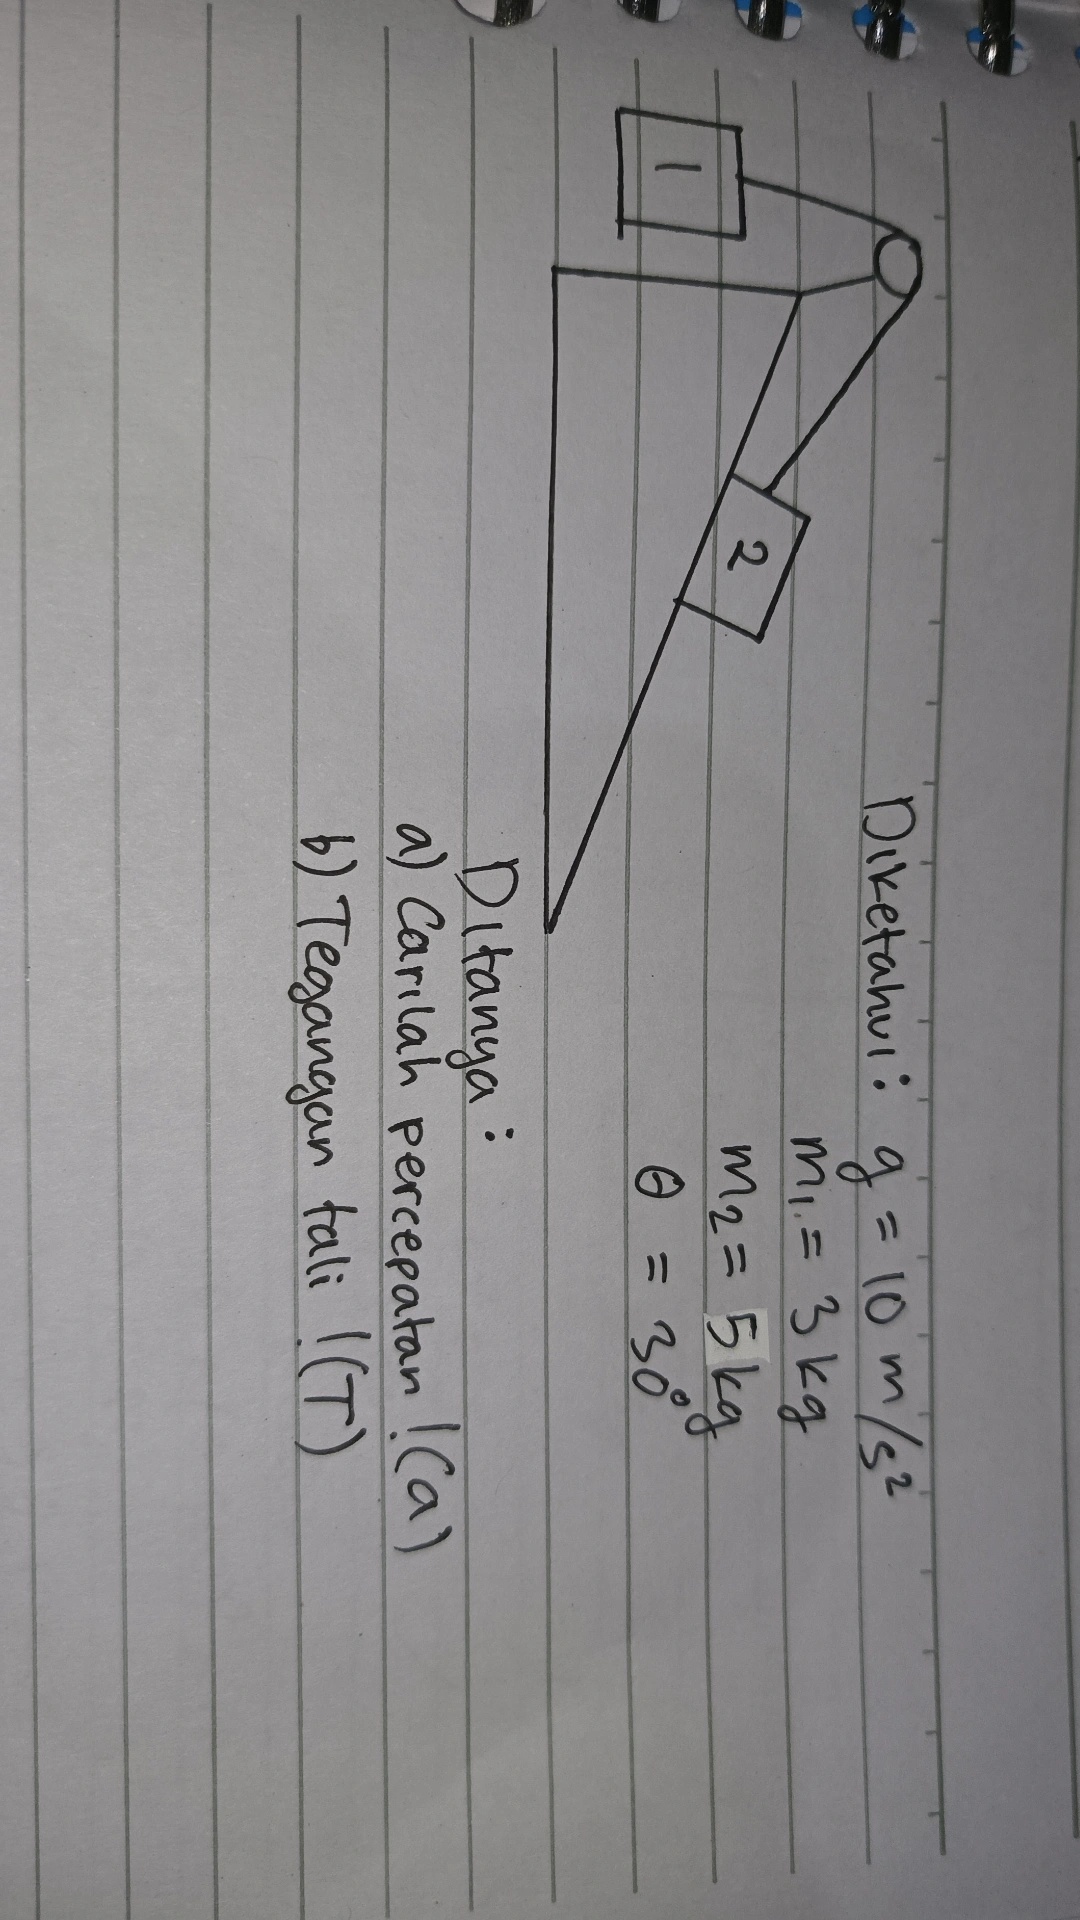 1
2
Diketahui : g = 10 m/s²
m₁ = 3 kg
m₂ = 5 kg
θ = 30°
Ditanya :
a) Carilah percepatan ! (a)
b) Tegangan tali ! (T)